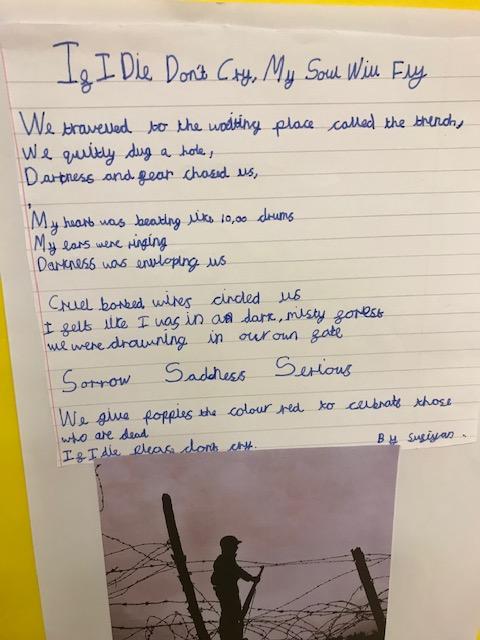 If I Die Don't Cry, My Soul Will Fly
We travelled to the waiting place called the trench,
We quitly dug a hole,
Darkness and fear chased us,
My heart was beating like 10,00 drums
My ears were ringing
Darkness was enveloping us
Cruel barbed wires circled us
I felt like I was in a dark, misty forest
we were drowning in our own fate
Sorrow Saddness Serious
We give poppies the colour red to celbrate those
who are dead
If I die please dont cry. By